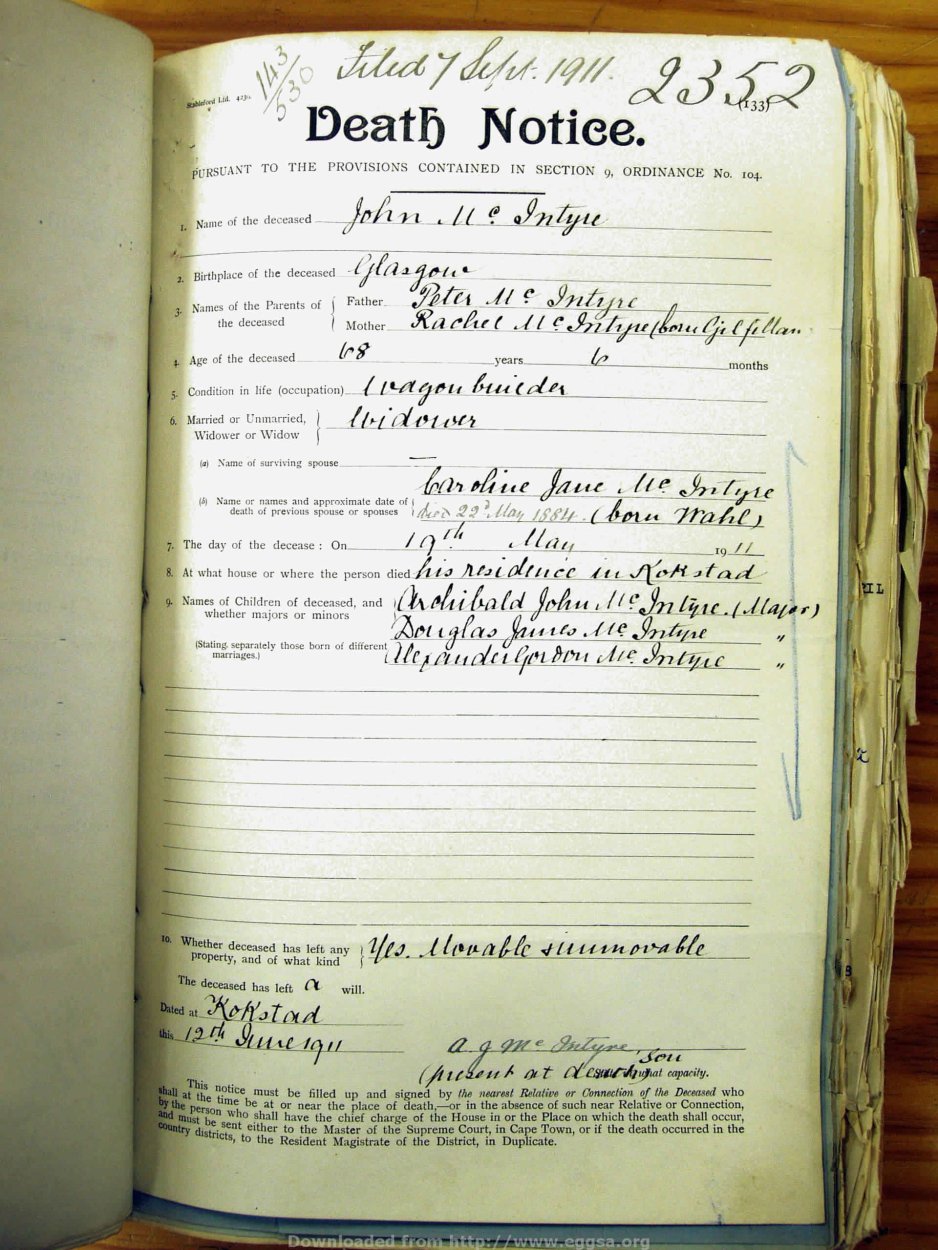 143
530
Filed 7 Sept. 1911.
2352
(133)
Death Notice.
PURSUANT TO THE PROVISIONS CONTAINED IN SECTION 9, ORDINANCE No. 104.
1. Name of the deceased John Mc Intyre
2. Birthplace of the deceased Glasgow
3. Names of the Parents of the deceased { Father Peter Mc Intyre
Mother Rachel Mc Intyre (born Gilfillan
4. Age of the deceased 68 years 6 months
5. Condition in life (occupation) Wagonbuilder
6. Married or Unmarried, Widower or Widow } Widower
(a) Name of surviving spouse —
Caroline Jane Mc Intyre
(b) Name or names and approximate date of death of previous spouse or spouses { died 22d May 1884. (born Wahl)
7. The day of the decease : On 19th May 1911
8. At what house or where the person died his residence in Kokstad
9. Names of Children of deceased, and whether majors or minors { Archibald John Mc Intyre (Major)
Douglas James Mc Intyre "
(Stating separately those born of different marriages.) Alexander Gordon Mc Intyre "
10. Whether deceased has left any property, and of what kind } Yes. Movable & immovable
The deceased has left a will.
Dated at Kokstad
this 12th June 1911
a. J Mc Intyre, son
(present at death) what capacity.
This notice must be filled up and signed by the nearest Relative or Connection of the Deceased who
shall at the time be at or near the place of death,—or in the absence of such near Relative or Connection,
by the person who shall have the chief charge of the House in or the Place on which the death shall occur,
and must be sent either to the Master of the Supreme Court, in Cape Town, or if the death occurred in the
country districts, to the Resident Magistrate of the District, in Duplicate.
Downloaded from http://www.eggsa.org